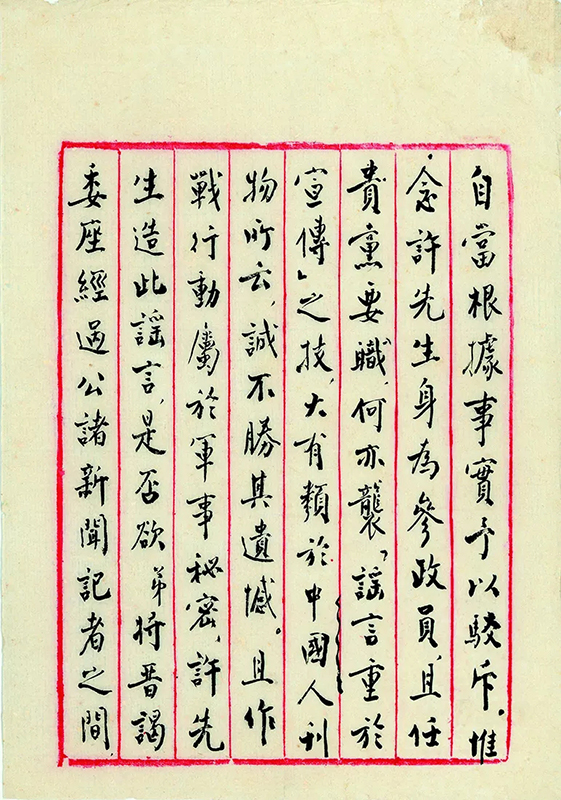 自當根據事實予以駁斥。惟
念許先生身為參政員，且任
貴黨要職，何亦襲「謠言重於
宣傳」之技，大有類於中國人刊
物所云，誠不勝其遺憾。且作
戰行動屬於軍事秘密，許先
生造此謠言，是否欲弟將晉謁
委座經過公諸新聞記者之間